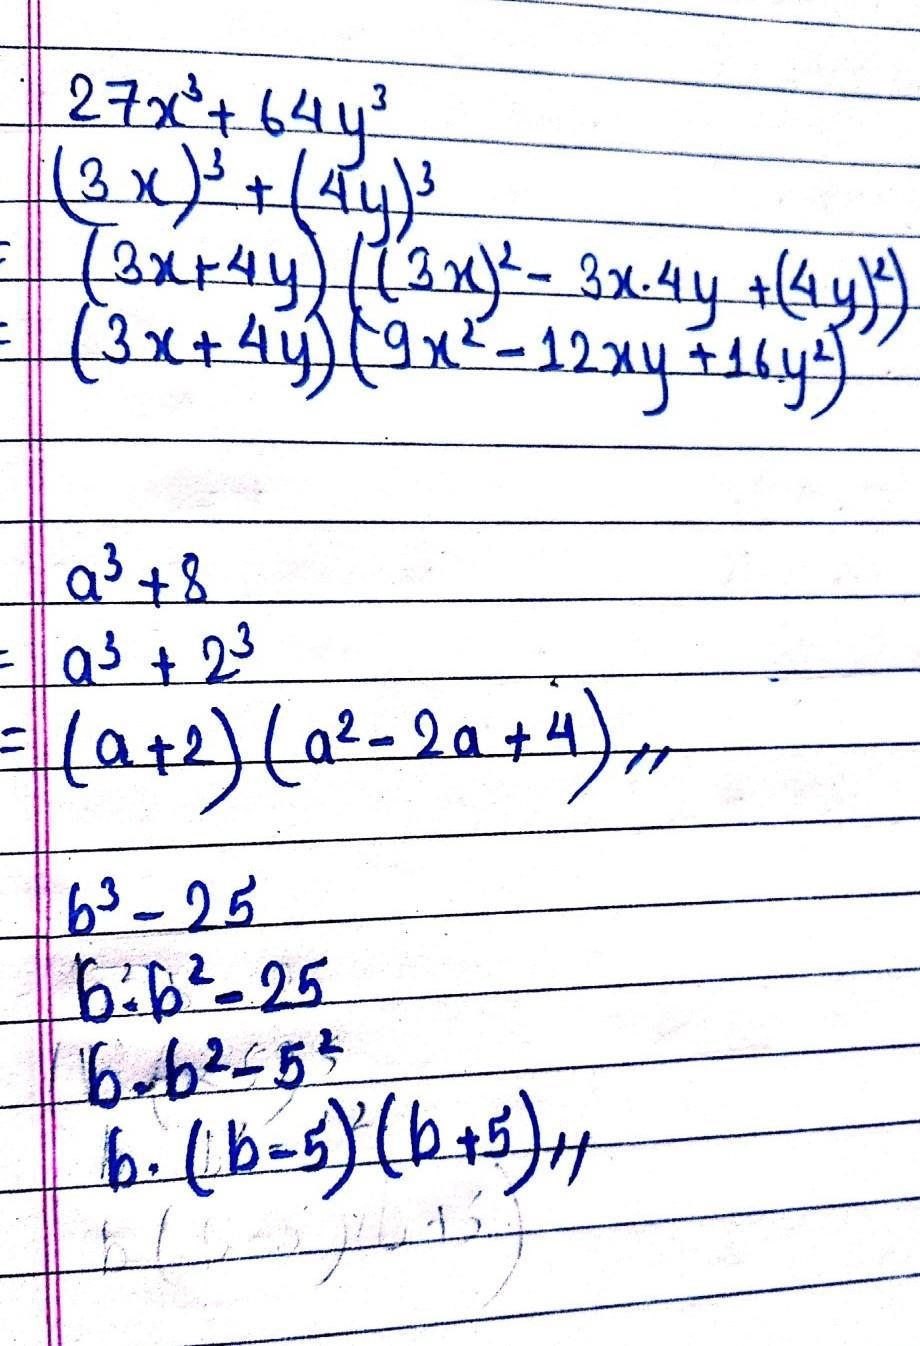 27x³ + 64y³
(3x)³ + (4y)³
= (3x+4y) ((3x)² - 3x.4y + (4y)²)
= (3x + 4y) (9x² - 12xy + 16y²)
a³ + 8
= a³ + 2³
= (a+2) (a² - 2a + 4),,
b³ - 25
b.b² - 25
b.b² - 5²
b. (b-5) (b+5),,